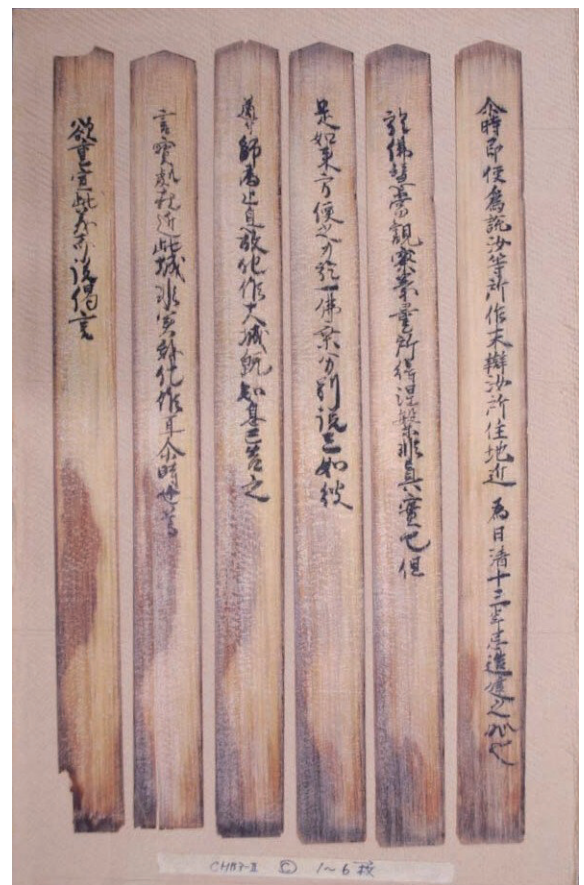 尒時即便爲説汝等所作未辦汝所住地近 為日清十三年忌造建之処也
於佛慧當觀察籌量所得涅槃非真實也但
是如来方便之力於一佛乗分別説三如彼
導師為止息故化作大城既知息已告之
言寶處在近此城非實我化作耳尒時世尊
欲重宣此義而説偈言
CHB7-II © 1~6枚